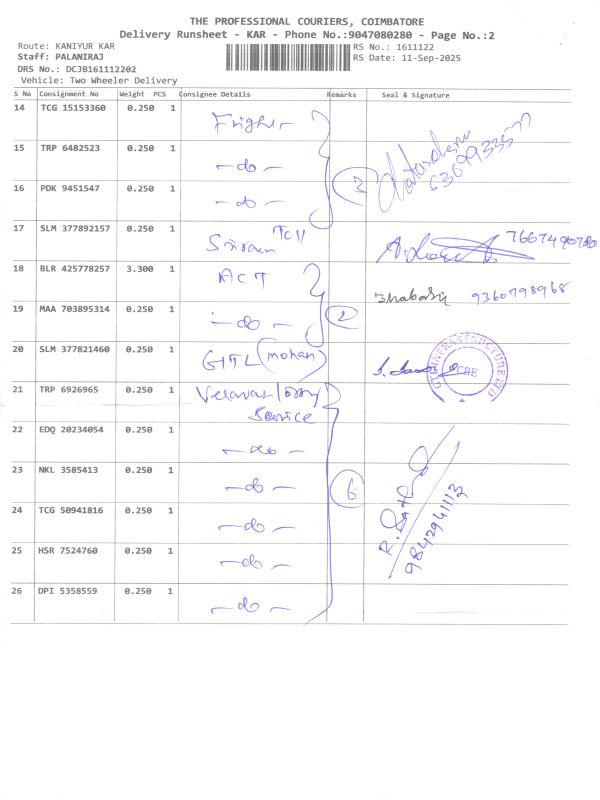 THE PROFESSIONAL COURIERS, COIMBATORE
Delivery Runsheet - KAR - Phone No.:9047080280 - Page No.:2
Route: KANIYUR KAR
RS No.: 1611122
Staff: PALANIRAJ
RS Date: 11-Sep-2025
DRS No.: DCJB161112202
Vehicle: Two Wheeler Delivery
S No Consignment No Weight PCS Consignee Details Remarks Seal & Signature
14 TCG 15153360 0.250 1
15 TRP 6482523 0.250 1 -do-
16 PDK 9451547 0.250 1 -do- 3
17 SLM 377892157 0.250 1 TCH
18 BLR 425778257 3.300 1 ACT 9360798968
19 MAA 703895314 0.250 1 -do- 2
20 SLM 377821460 0.250 1 (mohan)
21 TRP 6926965 0.250 1 Service
22 EDQ 20234054 0.250 1 -do-
23 NKL 3585413 0.250 1 -do- 6
24 TCG 50941816 0.250 1 -do- 9842941113
25 HSR 7524760 0.250 1 -do-
26 DPI 5358559 0.250 1 -do-